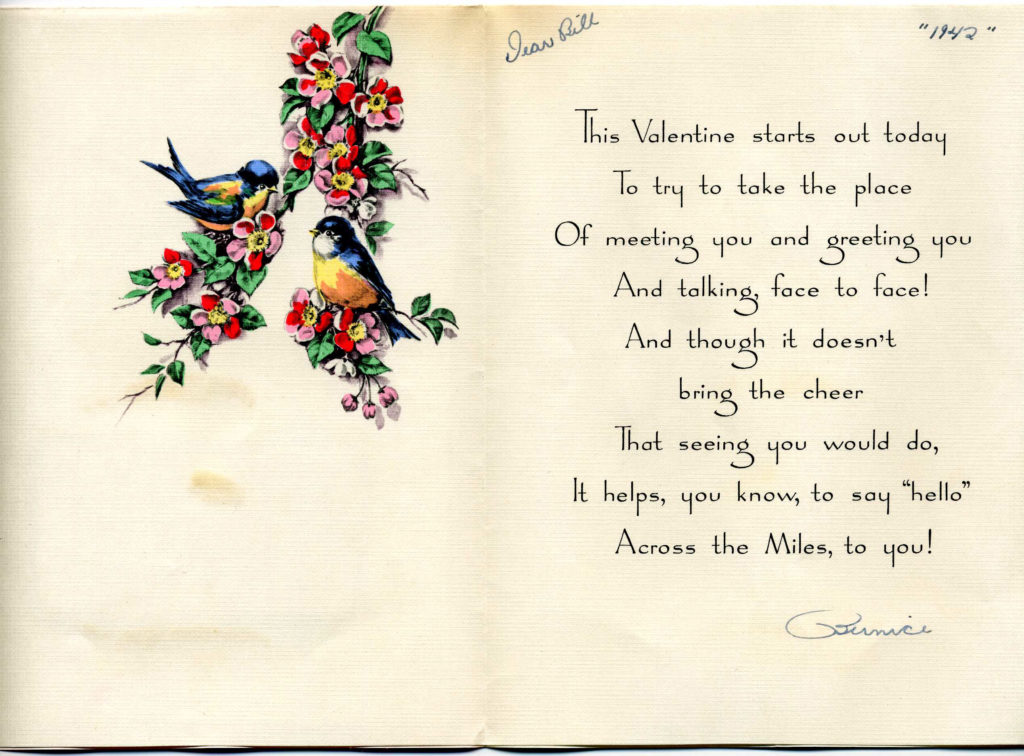 Dear Bill
"1942"
This Valentine starts out today
To try to take the place
Of meeting you and greeting you
And talking, face to face!
And though it doesn't
bring the cheer
That seeing you would do,
It helps, you know, to say “hello”
Across the Miles, to you!
Bernice